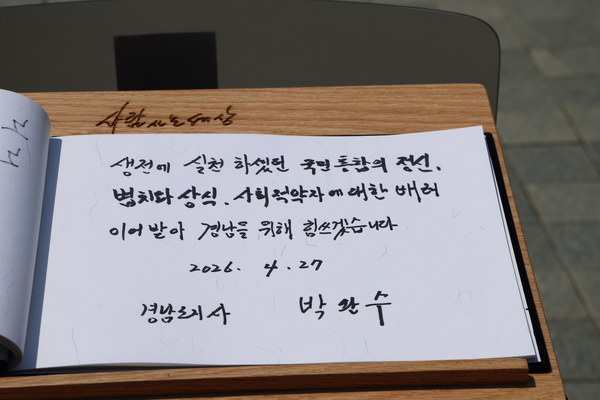 사람사는세상
생전에 실천 하셨던 국민통합의 정신,
법치와 상식, 사회적약자에 대한 배려
이어 받아 경남을 위해 힘쓰겠습니다
2026. 4. 27
경남도지사 박완수